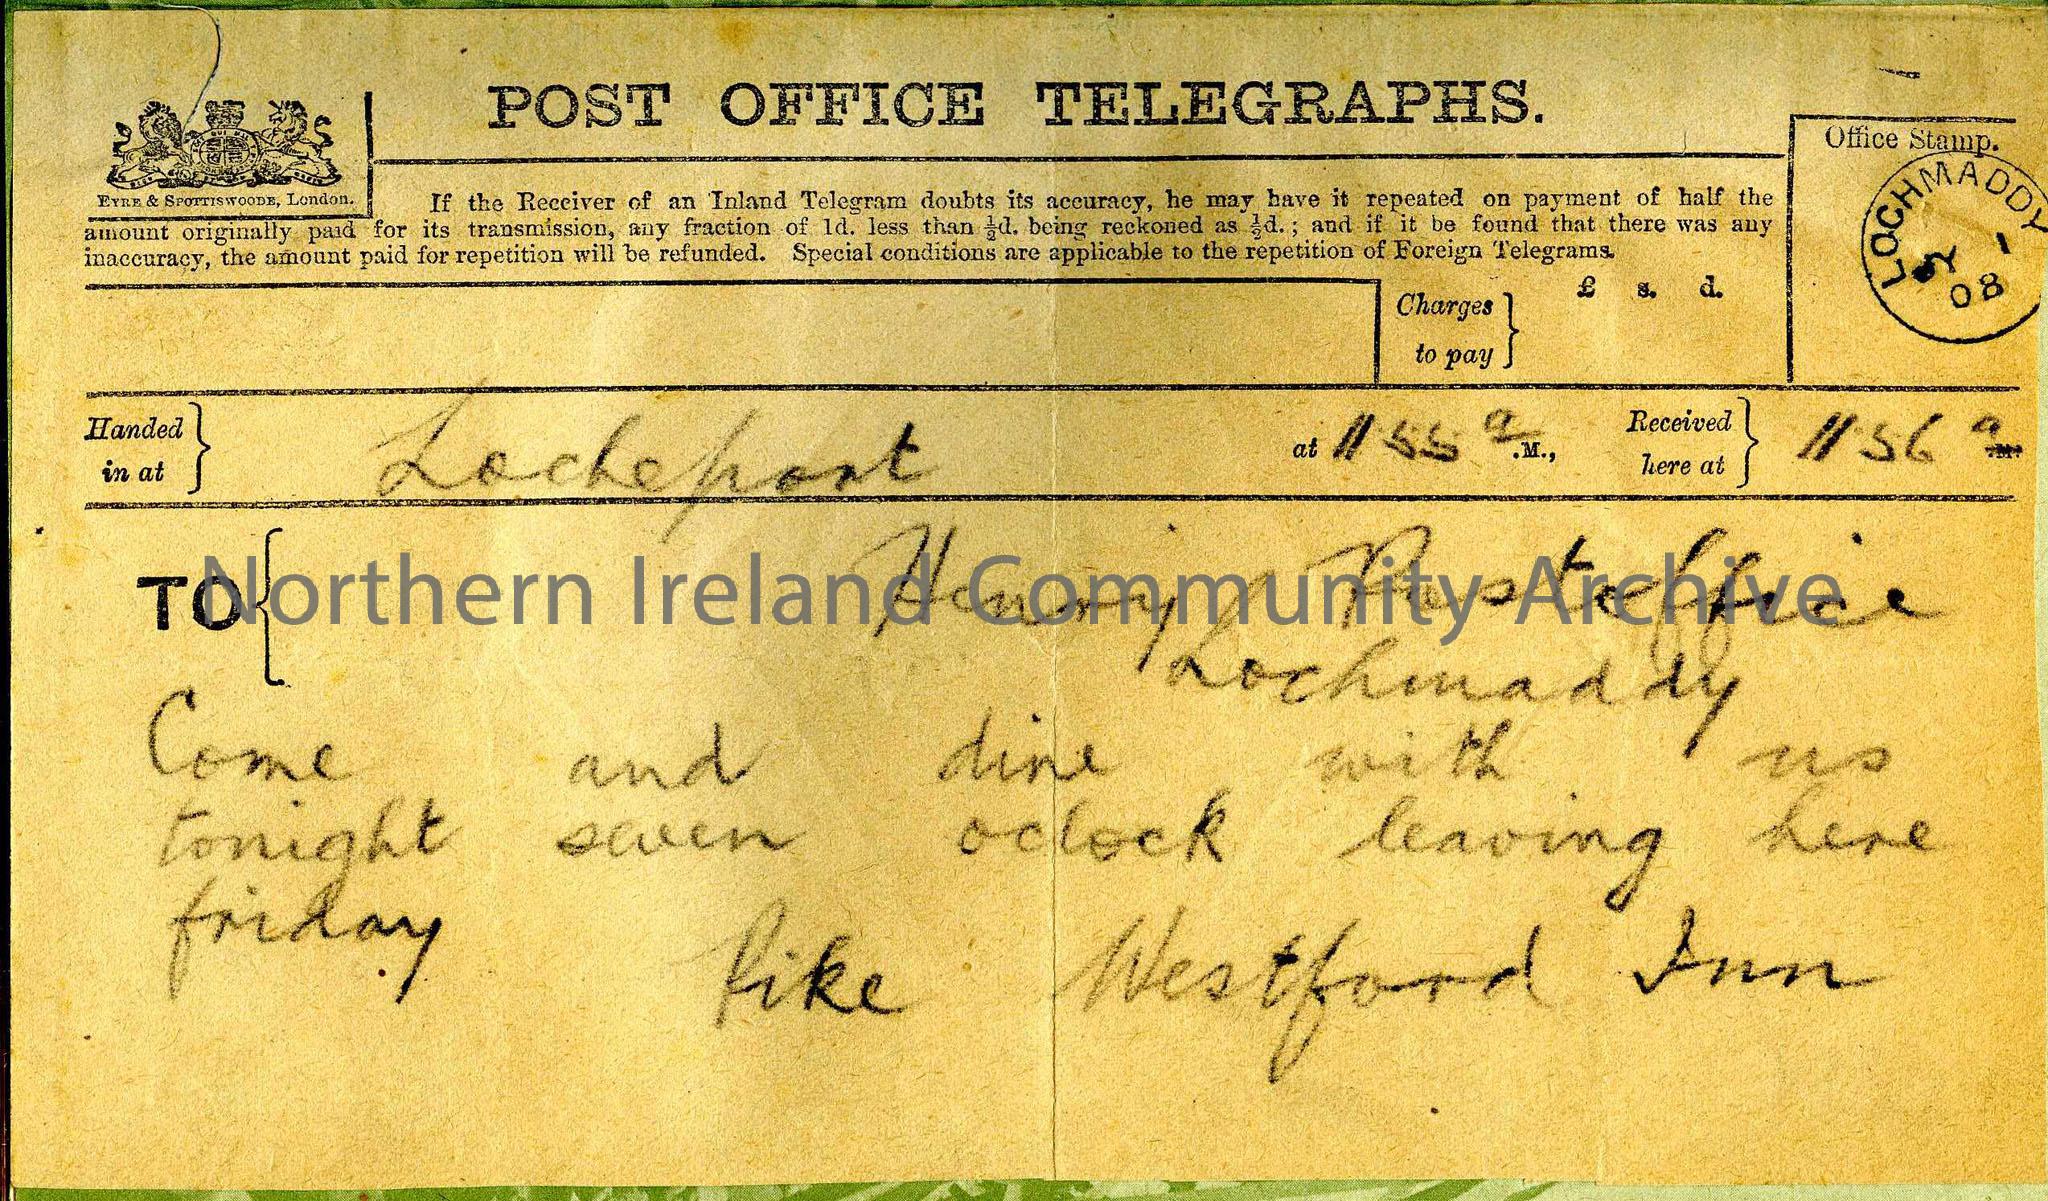 POST OFFICE TELEGRAPHS.
EYRE & SPOTTISWOODE, London.
Office Stamp.
LOCHMADDY
08
If the Receiver of an Inland Telegram doubts its accuracy, he may have it repeated on payment of half the
amount originally paid for its transmission, any fraction of 1d. less than ½d. being reckoned as ½d.; and if it be found that there was any
inaccuracy, the amount paid for repetition will be refunded. Special conditions are applicable to the repetition of Foreign Telegrams.
Charges to pay } £ s. d.
Handed in at } Locheport at 11 55 a .M., Received here at } 11 56 a .M.
TO { Henry Postoffice
Lochmaddy
Come and dine with us
tonight seven oclock leaving here
friday
Pike Westford Inn
Northern Ireland Community Archive